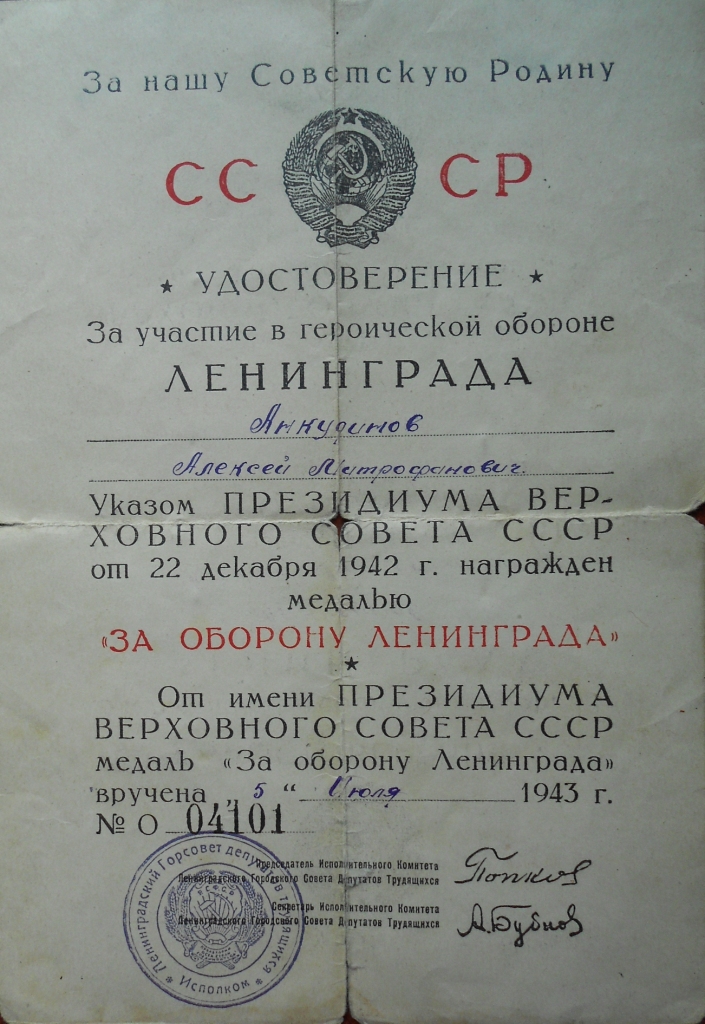 За нашу Советскую Родину
СС СР
★ УДОСТОВЕРЕНИЕ ★
За участие в героической обороне
ЛЕНИНГРАДА
Анкудинов
Алексей Митрофанович.
Указом ПРЕЗИДИУМА ВЕР-
ХОВНОГО СОВЕТА СССР
от 22 декабря 1942 г. награжден
медалью
«ЗА ОБОРОНУ ЛЕНИНГРАДА»
★
От имени ПРЕЗИДИУМА
ВЕРХОВНОГО СОВЕТА СССР
медаль «За оборону Ленинграда»
вручена „5“ Июля 1943 г.
№ О 04101
Председатель Исполнительного Комитета
Ленинградского Городского Совета Депутатов Трудящихся
Попков
Секретарь Исполнительного Комитета
Ленинградского Городского Совета Депутатов Трудящихся
А.Бубнов
Ленинградский Горсовет депутатов трудящихся
★ Исполком ★